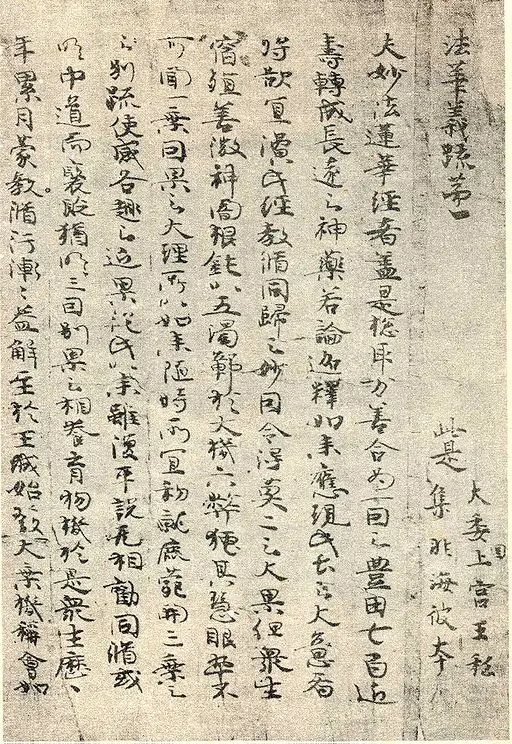 法華義疏第一
此是
大委国上宮王私
集非海彼本
夫妙法蓮華經者盖是惣取万善合為一因之豊田七百近
壽轉成長遠之神藥若論迦釋如来應現此土之大意者
将欲宜演此經教脩同歸之妙因令得莫二之大果但衆生
宿殖善微神闇根鈍以五濁鄣於大機六弊掩其慧眼卒不
可聞一乗因果之大理所以如来随時所宜初就鹿菀開三乗之
別疏使感各趣之近果従此以来雖復平説无相勧同脩或
明中道而褒貶猶明三因別果之相養育物機於是衆生歴々
年累月蒙教脩行漸々益解至於王城始發大乗機稱會如